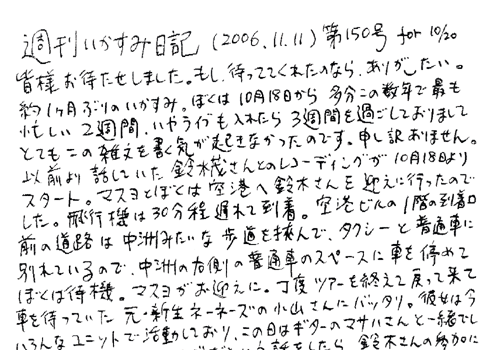 週刊いかすみ日記 (2006.11.11) 第150号 for 10/20
皆様お待たせしました。もし、待っててくれたのなら、ありがたい。
約1ヶ月ぶりのいかすみ。ぼくは10月18日から多分この数年で最も
忙しい2週間、いやライブも入れたら3週間を過ごしておりまして
とてもこの雑文を書く気が起きなかったのです。申し訳ありません。
以前より話していた鈴木茂さんとのレコーディングが10月18日より
スタート。マスヨとぼくは空港へ鈴木さんを迎えに行ったので
した。飛行機は30分程遅れて到着。空港ビルの1階の到着口
前の道路は中洲みたいな歩道を挟んで、タクシーと普通車に
別れているので、中洲の右側の普通車のスペースに車を停めて
ぼくは待機。マスヨがお迎えに。丁度ツアーを終えて戻って来て
車を待っていた元・新生ネーネーズの小山さんにバッタリ。彼女は今
いろんなユニットで活動しており、この日はギターのマサハさんと一緒でし
という話をしたら、鈴木さんの参加に